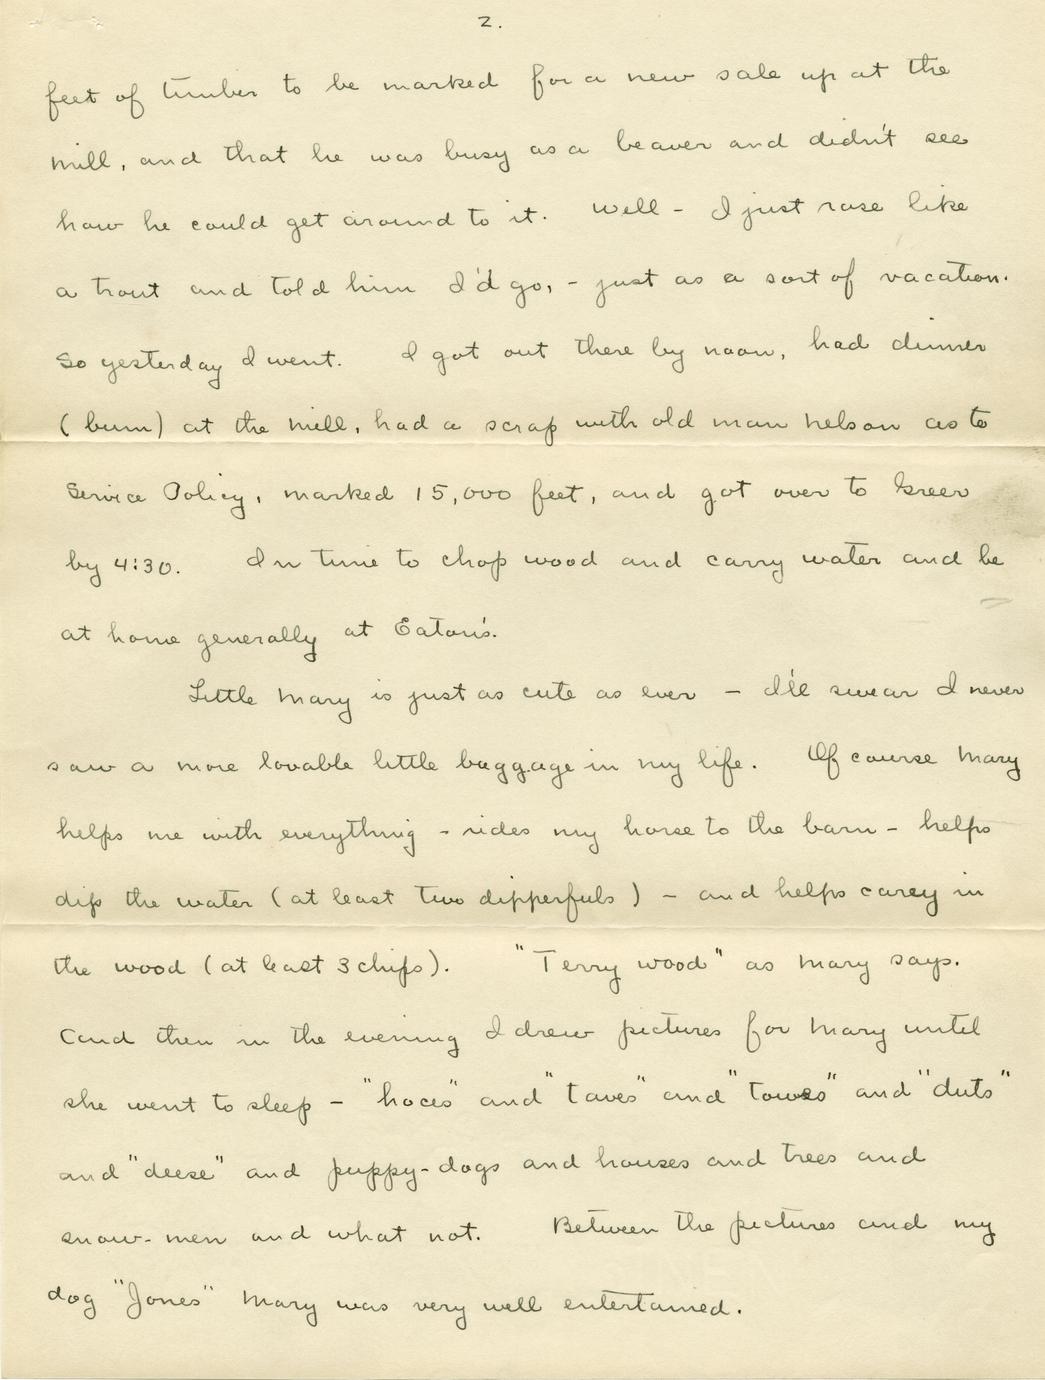 2.
feet of timber to be marked for a new sale up at the
mill, and that he was busy as a beaver and didn't see
how he could get around to it. Well - I just rose like
a trout and told him I'd go, - just as a sort of vacation.
So yesterday I went. I got out there by noon, had dinner
(bum) at the mill, had a scrap with old man Nelson as to
Service Policy, marked 15,000 feet, and got over to Greer
by 4:30. In time to chop wood and carry water and be
at home generally at Eaton's.
Little Mary is just as cute as ever - I'll swear I never
saw a more lovable little baggage in my life. Of course Mary
helps me with everything - rides my horse to the barn - helps
dip the water (at least two dipperfuls) - and helps carry in
the wood (at least 3 chips). "Terry wood" as Mary says.
And then in the evening I drew pictures for Mary until
she went to sleep - "hoces" and "taves" and "towes" and "duts"
and "deese" and puppy-dogs and houses and trees and
snow-men and what not. Between the pictures and my
dog "Jones" Mary was very well entertained.